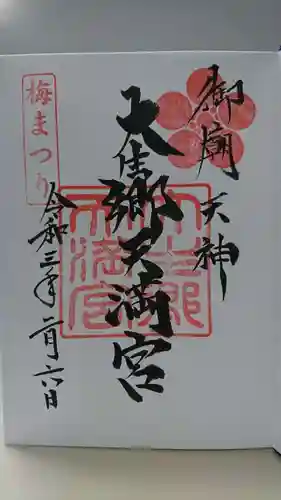 御廟天神
大生郷天満宮
梅まつり
令和三年二月六日
大生郷天満宮